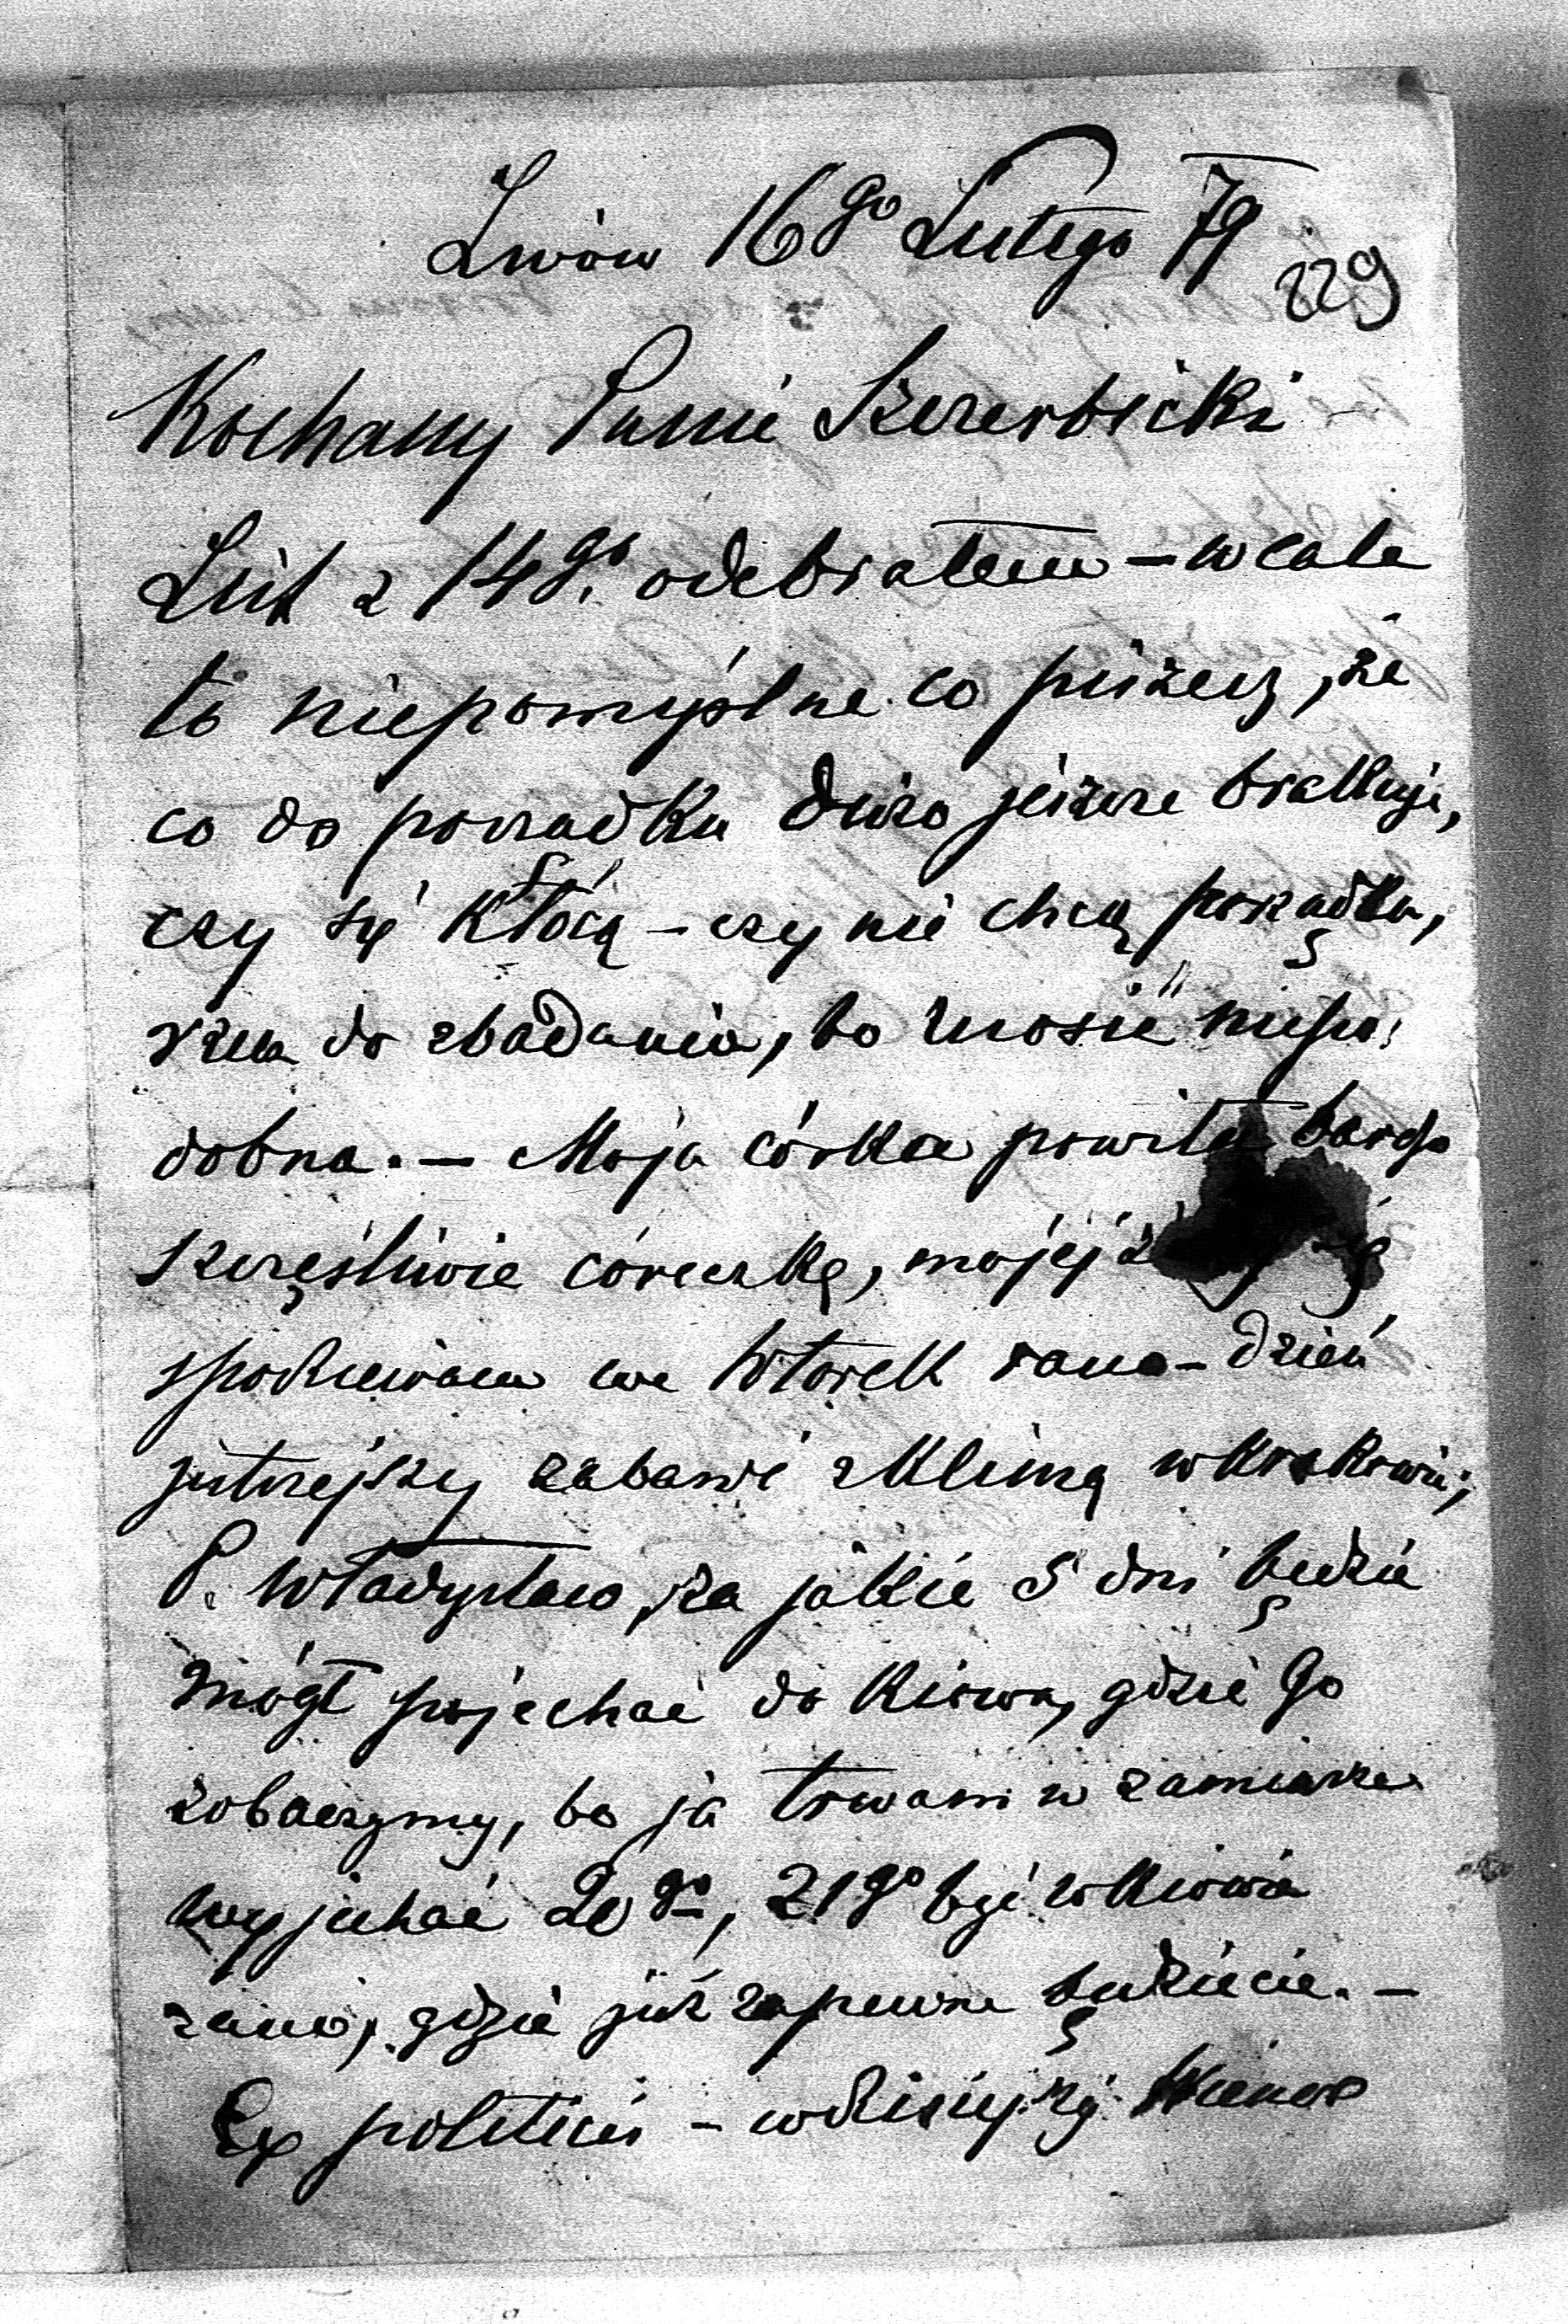 Lwów 16go Lutego 79
229
Kochany Panie Szczerbicki
List z 14go. odebrałem – wcale
to niepomyślne co piszesz, że
co do porzadku dużo jeszcze brakuje,
czy się kłócą – czy nie chcą porządku,
rzecz do zbadania, bo znosić niepo:
dobna. – Moja córka powiła bardzo
szczęśliwie córeczkę, mojej się
spodziewam we Wtorek rano – dzień
jutrzejszy zabawi z Klimą w Krakowie;
P. Władysław, za jakie 5 dni będzie
mógł pojechać do Kiowa, gdzie Go
zobaczymy, bo ja trwam w zamiarze
wyjechać 20go, 21go być w Kiowie
rano, gdzie już zapewne będziecie. –
Ex politicis – w dzisiejszej